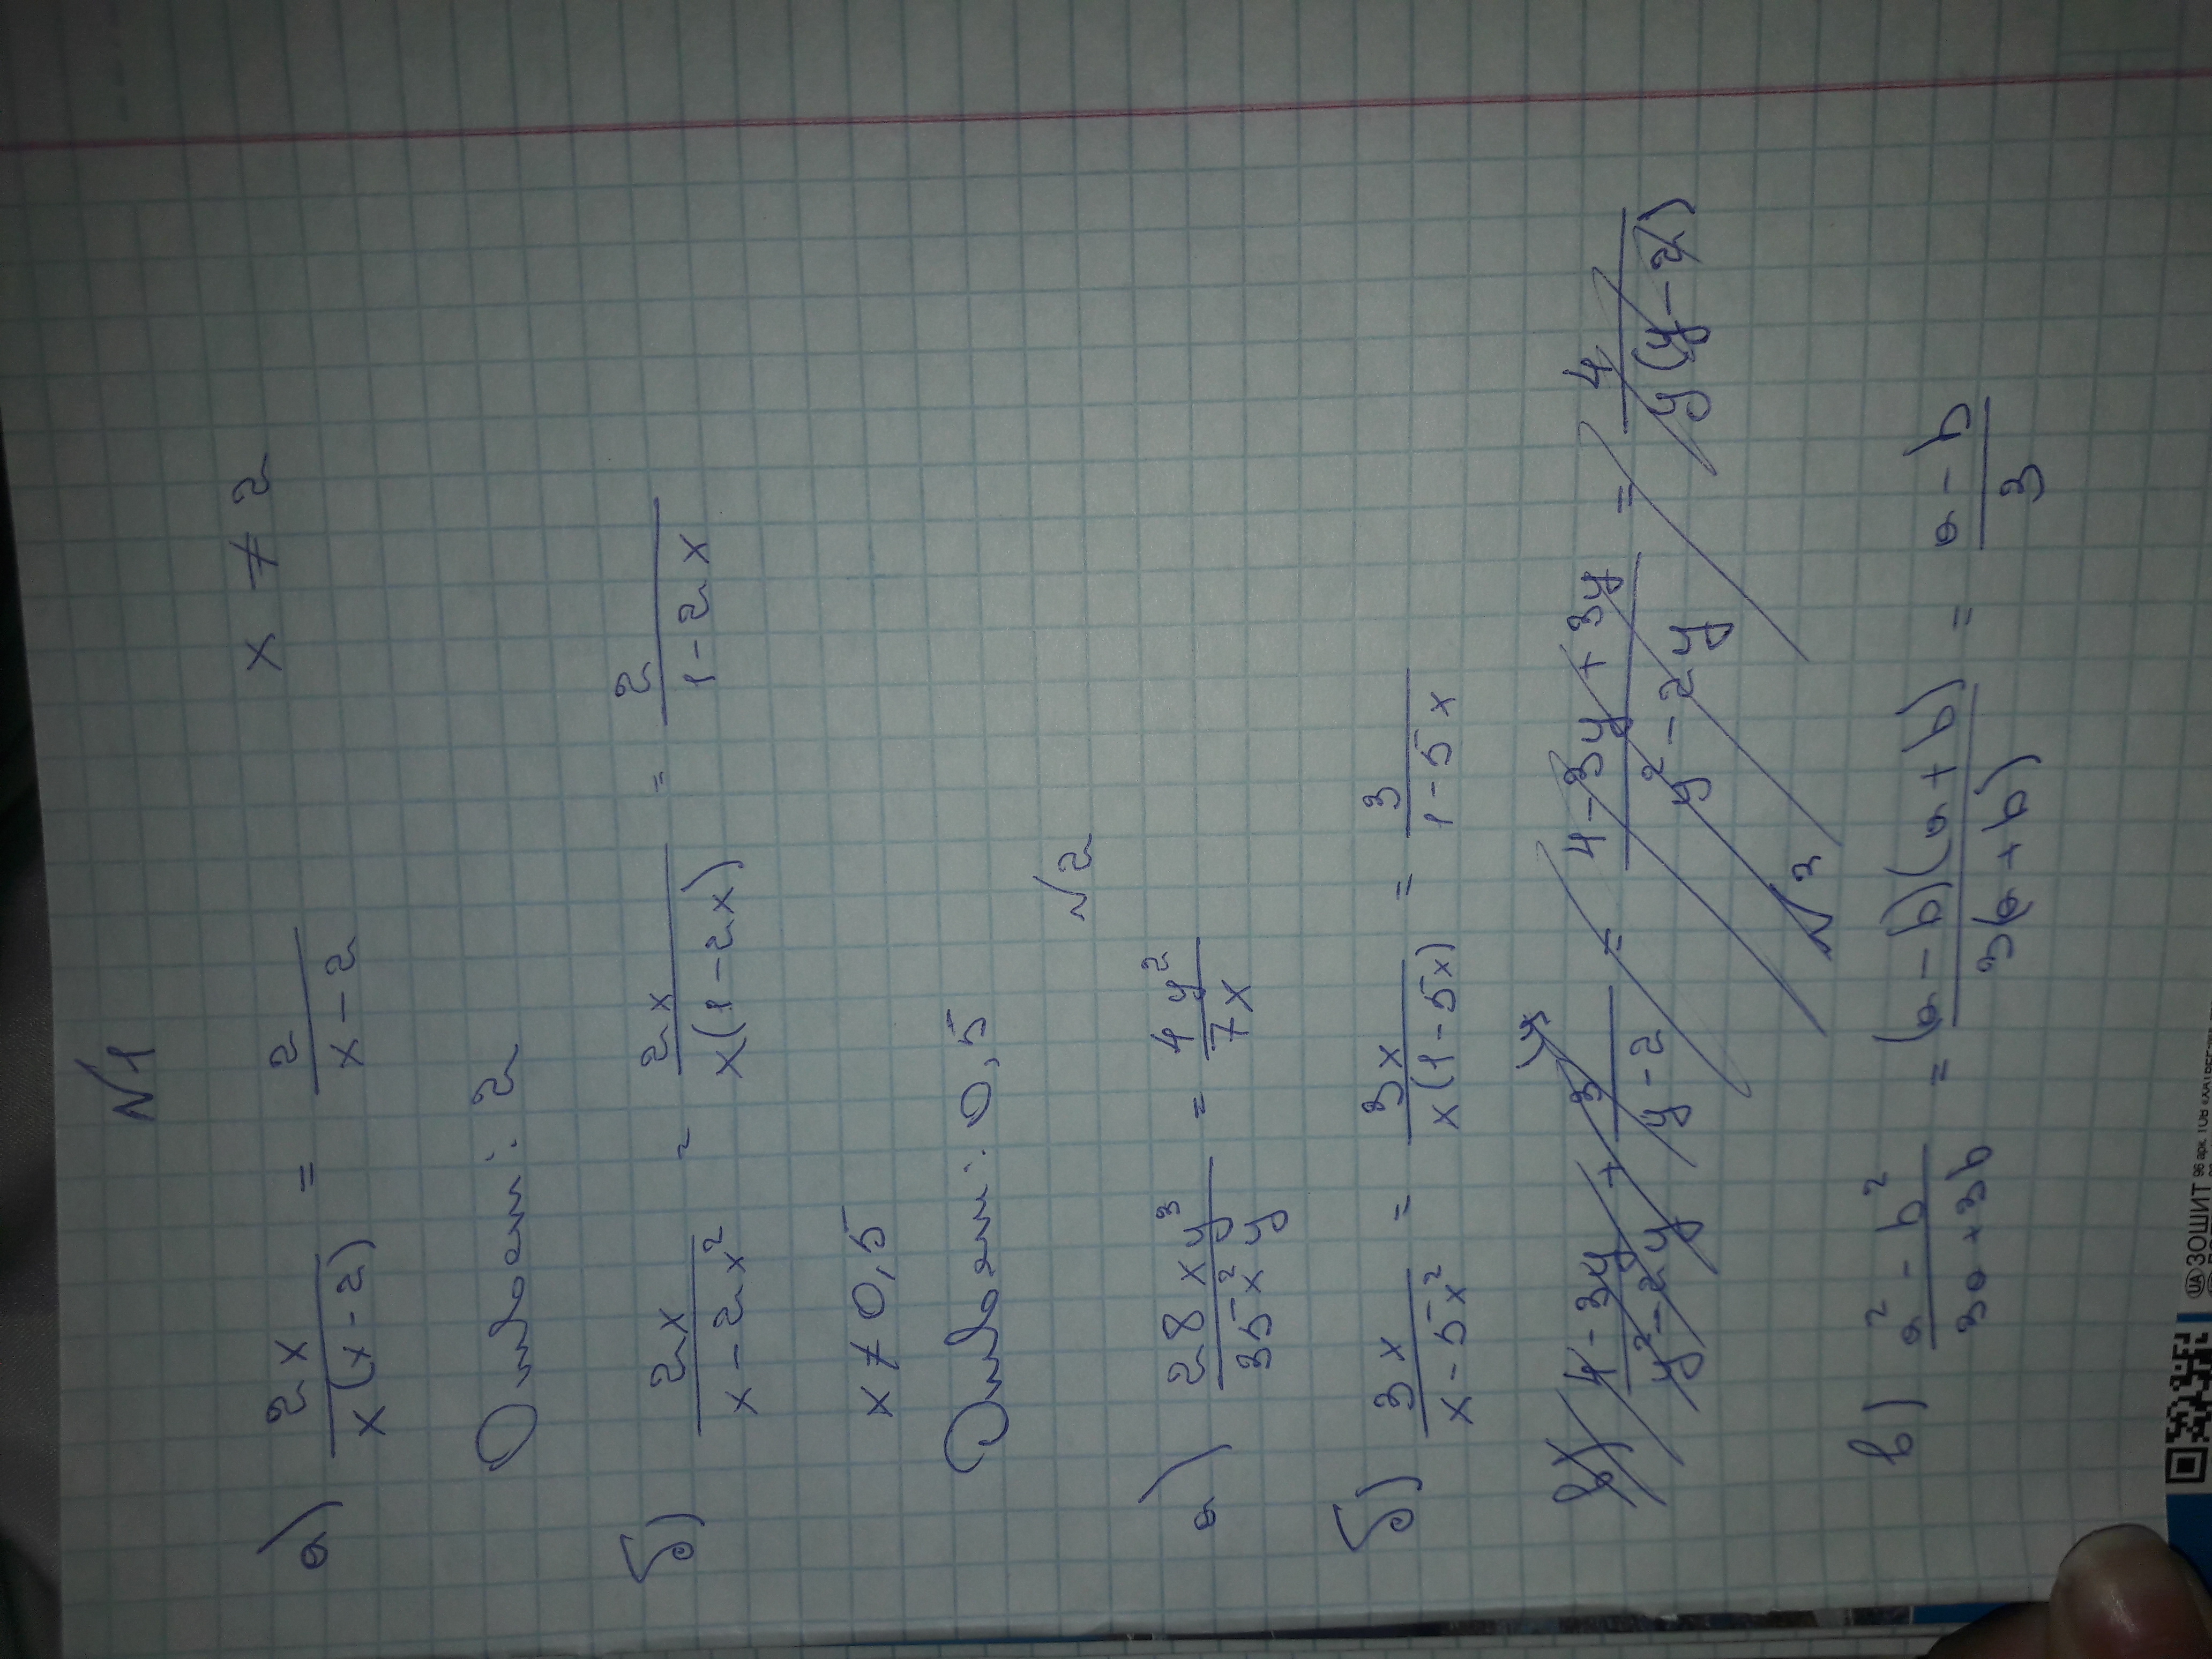 №1
а) 2x/x(x-2) = 2/x-2    x ≠ 2
Ответ: 2
б) 2x/x-2x² = 2x/x(1-2x) = 2/1-2x
x ≠ 0,5
Ответ: 0,5
№2
а) 28xy³/35x²y = 4y²/7x
б) 3x/x-5x² = 3x/x(1-5x) = 3/1-5x
в) 4-3y/y²-2y + 3/y-2 (y = 4-3y+3y/y²-2y = 4/y(y-2)
№3
в) a²-b²/3a+3b = (a-b)(a+b)/3(a+b) = a-b/3
UA ЗОШИТ 96 арк.